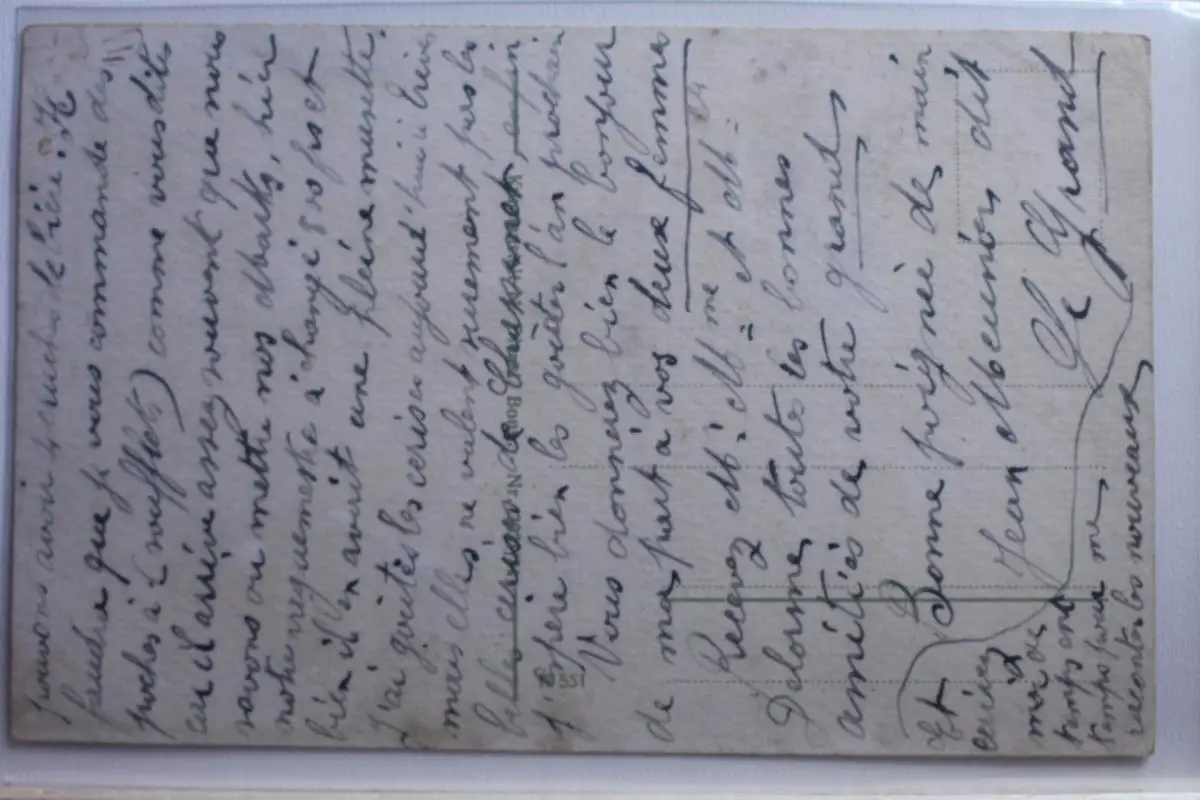 faudra que je vous commande des
poches à (soufflets) comme vous dites
car il arrive assez souvent que nous
savons ou mettre nos marks, hier
notre à changé 500 frs et
bien il en avait une pleine musette.
J'ai goûtés les cerises aujourd'hui
mais elles ne valent surement pas les
belles cerises de
J'espère bien les goûter l'an prochain
Vous donnerez bien le bonjour
de ma part à vos deux femmes
Recevez Mr Mme et Mr
Delorme, toutes les bonnes
amitiés de votre grand,
Et Bonne poignée de main
Jean dit
Le Grand
551
écrivez
moi de
temps en
temps pour me
raconter les nouveaux